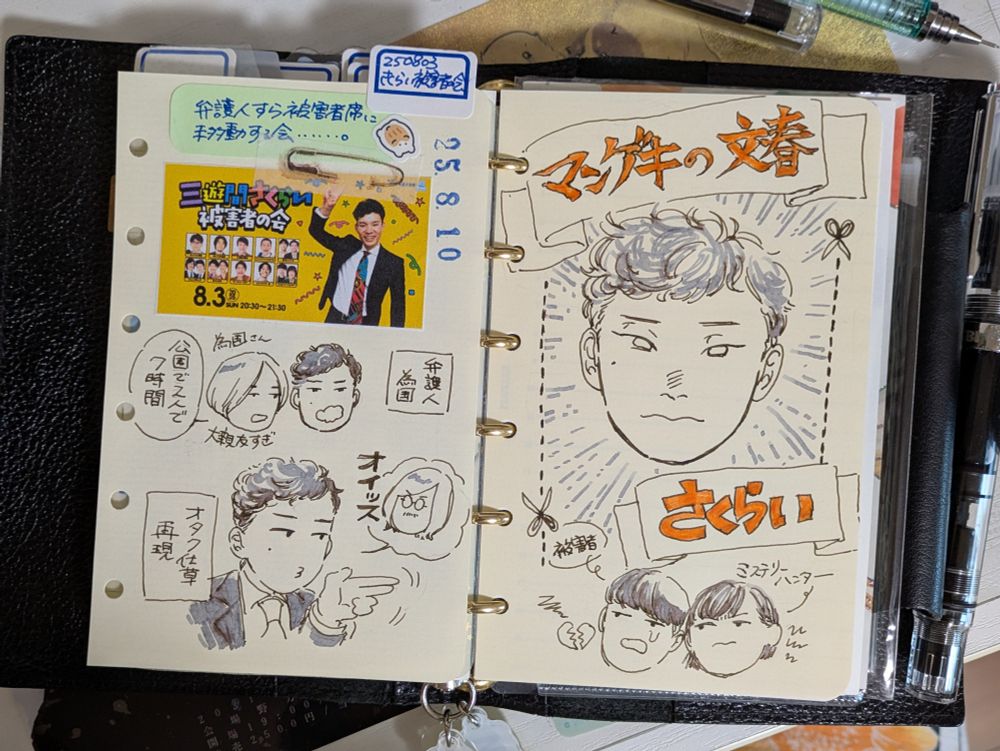 250803
さくらい被害者の会
弁護人すら被害者席に
移動する会……。
25.8.10
三遊間さくらい
被害者の会
8.3
SUN 20:30~21:30
為国さん
公園でスんで
7時間
大親友すぎ
弁護人
為国
オイッス
オタク仕草
再現
マンゲキの文春
さくらい
被害者
ミステリー
ハンター